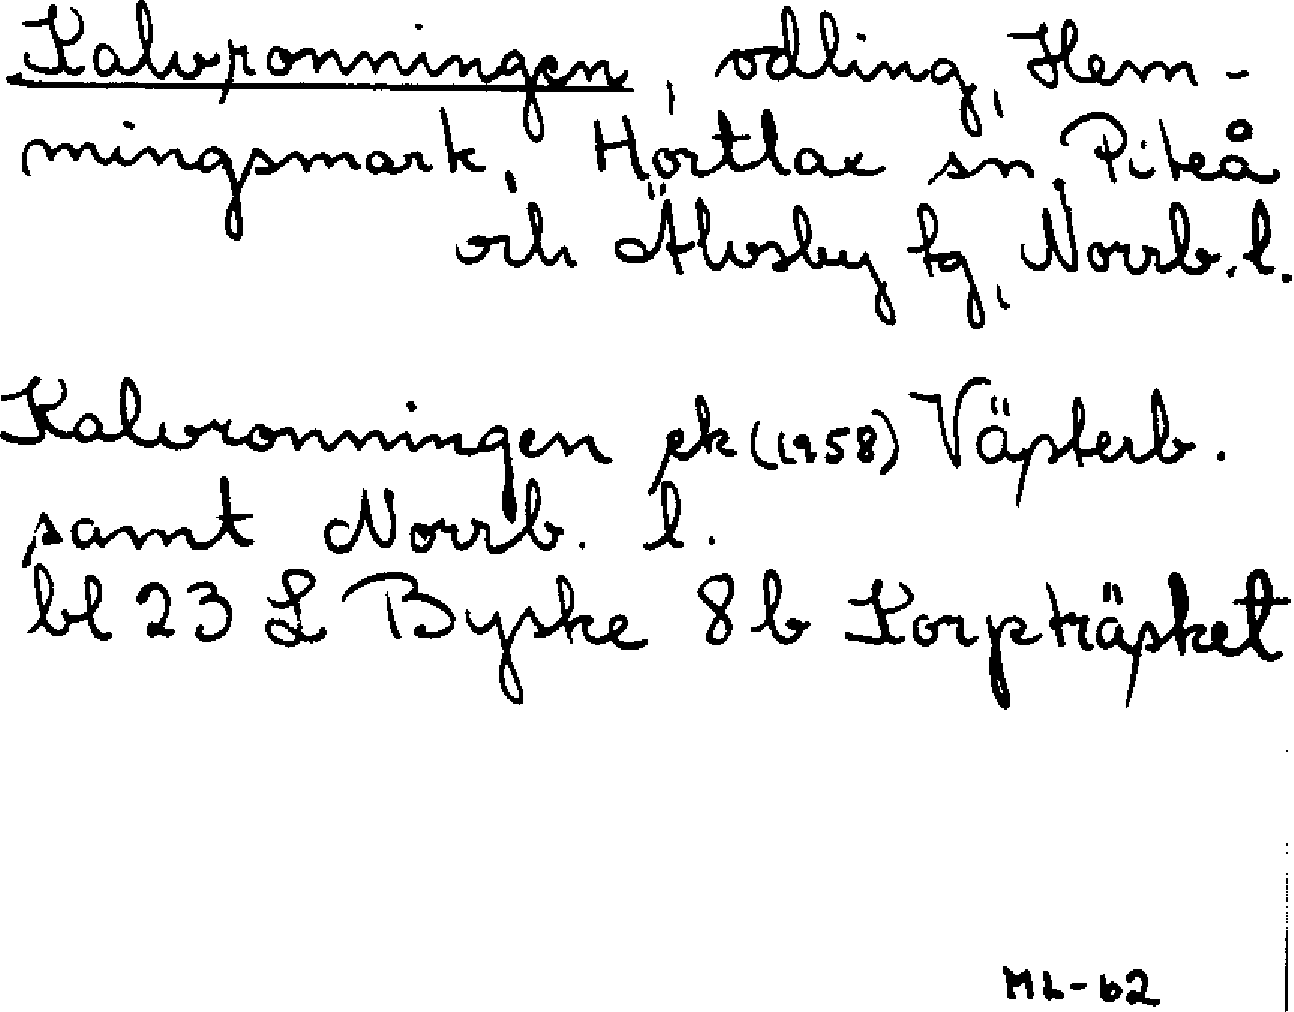 Kalvronningen, odling, Hem-
mingsmark, Hortlax sn, Piteå
och Älvsby tg, Norrb. l.
Kalvronningen ek (1958) Västerb.
samt Norrb. l.
bl 23 L Byske 8 b Korpträsket
ML-62